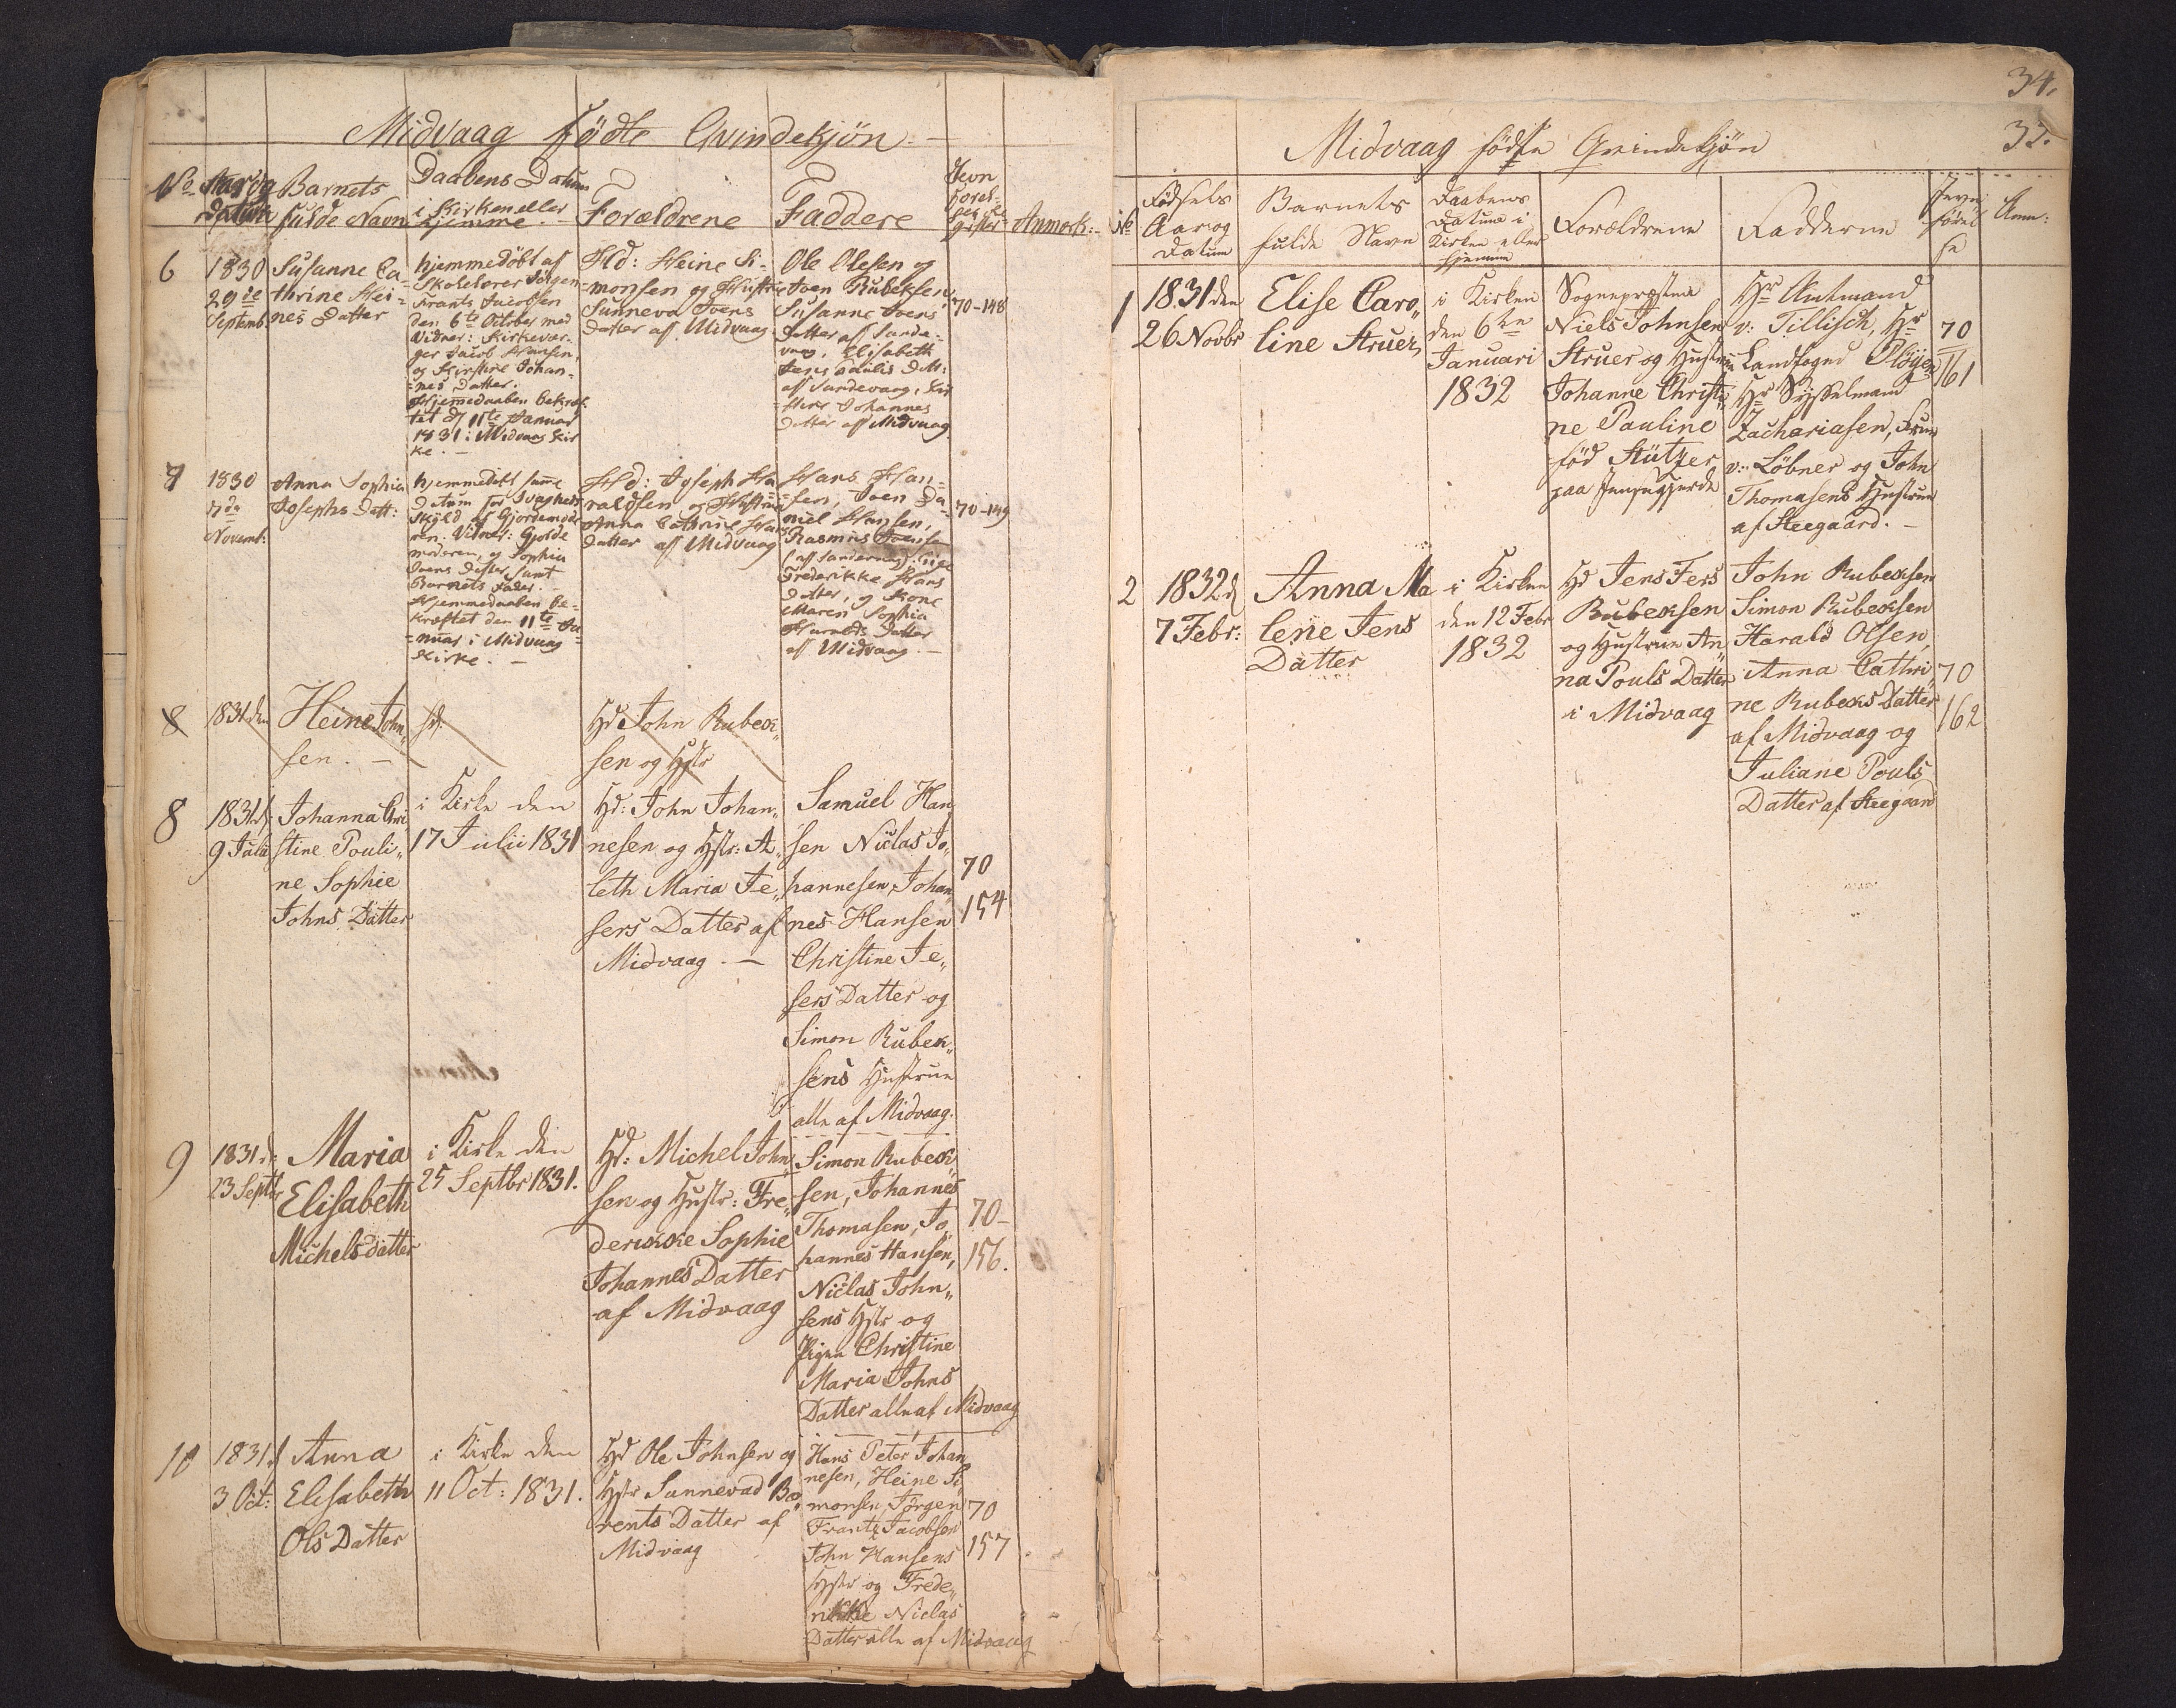 Midvaag fødte Qvindekjøn
No
Aar og
Datum
Barnets
fulde Navn
Daabens Datum
i Kirken eller
hjemme
Forældrene
Faddere
Jevn
Førel-
se
Anmerk:
6
1830
29de
Septemb.
Susanne Ca
thrine Hei=
nes Datter
hjemmedøbt af
Skolelærer Jørgen
Frants Jacobsen
den 6te October med
Vidner: Kirkevær-
ger Jacob Hansen,
og Kirstine Johan-
=nes Datter.
Hjemmedaaben bekræf
tet d 11te Januar
1831 i Midvaag Kir
ke. -
Hd: Heine Si-
=monsen og Hustrue
Sunneva Joens
Datter af Midvaag
Ole Olesen og
Joen Rubeksen,
Susanne Joens
Datter af Sande-
vaag, Elisabeth
Jens Datt:
af Sandevaag, Kir
stine Johannes
Datter af Midvaag
70-148
7
1830
7de
Novemb:
Anna Sophia
Josephs Datt:
hjemmedøbt samme
Datum for Svagheds
Skyld af Gjordemode
ren. Vidner: Gjorde
moderen, og Sophia
Joens Datter, samt
Barnets Fader.
Hjemmedaaben be-
kræftet den 11te Ja-
=nuar i Midvaag
Kirke. -
Hd: Joseph Ha
raldsen og Hustrue
Anna Cathrine Hans
Datter af Midvaag
Hans Han-
sen, Joen Da-
niel Hansen,
Rasmus Joensen
(af Sandevaag) Pige
Frederikke Hans
Datter, og Kone
Maren Sophia
Haralds Datter
af Midvaag. -
70-149
8
1831 den
Heine John„
sen. -
Hd John Rubek„
sen og Hstr
8
1831 d
9 Julii
Johanna Chri
stine Pouli„
ne Sophie
Johns Datter
i Kirke den
17 Julii 1831
Hd: John Johan„
nesen og Hstr: A„
leth Maria Je„
sers Datter af
Midvaag. -
Samuel Han
sen Niclas Jo„
hannesen, Johan
nes Hansen
Christine Je„
sers Datter og
Simon Rubek„
sens Hustrue
alle af Midvaag.
70
154
9
1831 d:
23 Septbr
Maria
Elisabeth
Michelsdatter
i Kirke den
25 Septbr 1831.
Hd: Michel John„
sen og Hustr: Fre„
derikke Sophie
Johannes Datter
af Midvaag
Simon Rubek„
sen, Johannes
Thomasen, Jo„
hannes Hansen,
Niclas John„
sens Hstr og
Pigen Christine
Maria Johns
Datter alle af Midvaag
70-
156.
10
1831 d
3 Oct:
Anna
Elisabeth
Ols Datter
i Kirke den
11 Oct: 1831.
Hd Ole Johnsen og
Hstr Sunnevad Bæ„
rents Datter af
Midvaag
Hans Peter Johan
nesen, Heine Si„
monsen, Jørgen
Frantz Jacobsen
John Hansens
Hstr og Frede„
rikke Niclas
Datter alle af Midvaag
70
157
34.
32.
Midvaag fødte Qvindekjøn
No
Fødsels
Aar og
Datum
Barnets
fulde Navn
Daabens
Datum i
Kirken eller
hjemme
Forældrene
Fadderne
Jevn
førel
se
Anm:
1
1831 den
26 Novbr
Elise Caro„
line Struer,
i Kirken
den 6te
Januari
1832
Sognepræsten
Niels Johnsen
Struer og Hustrue
Johanne Christi„
ne Pauline
fød Stützer
paa Jensagjerde
Hr Amtmand
v: Tillisch, Hr
Landfoged Pløyen
Hr Sysselmand
Zachariasen, Frue
v: Løbner og John
Thomasens Hustrue
af Steegaard. -
70
161
2
1832 d
7 Febr:
Anna Ma
lene Jens
Datter
i Kirken
den 12 Febr
1832
Hd Jens Fers
Rubeksen
og Hustrue An„
na Pouls Datter
i Midvaag
John Rubeksen
Simon Rubeksen
Harald Olsen,
Anna Cathri„
ne Rubeks Datter
af Midvaag og
Juliane Pouls
Datter af Steegaard
70
162